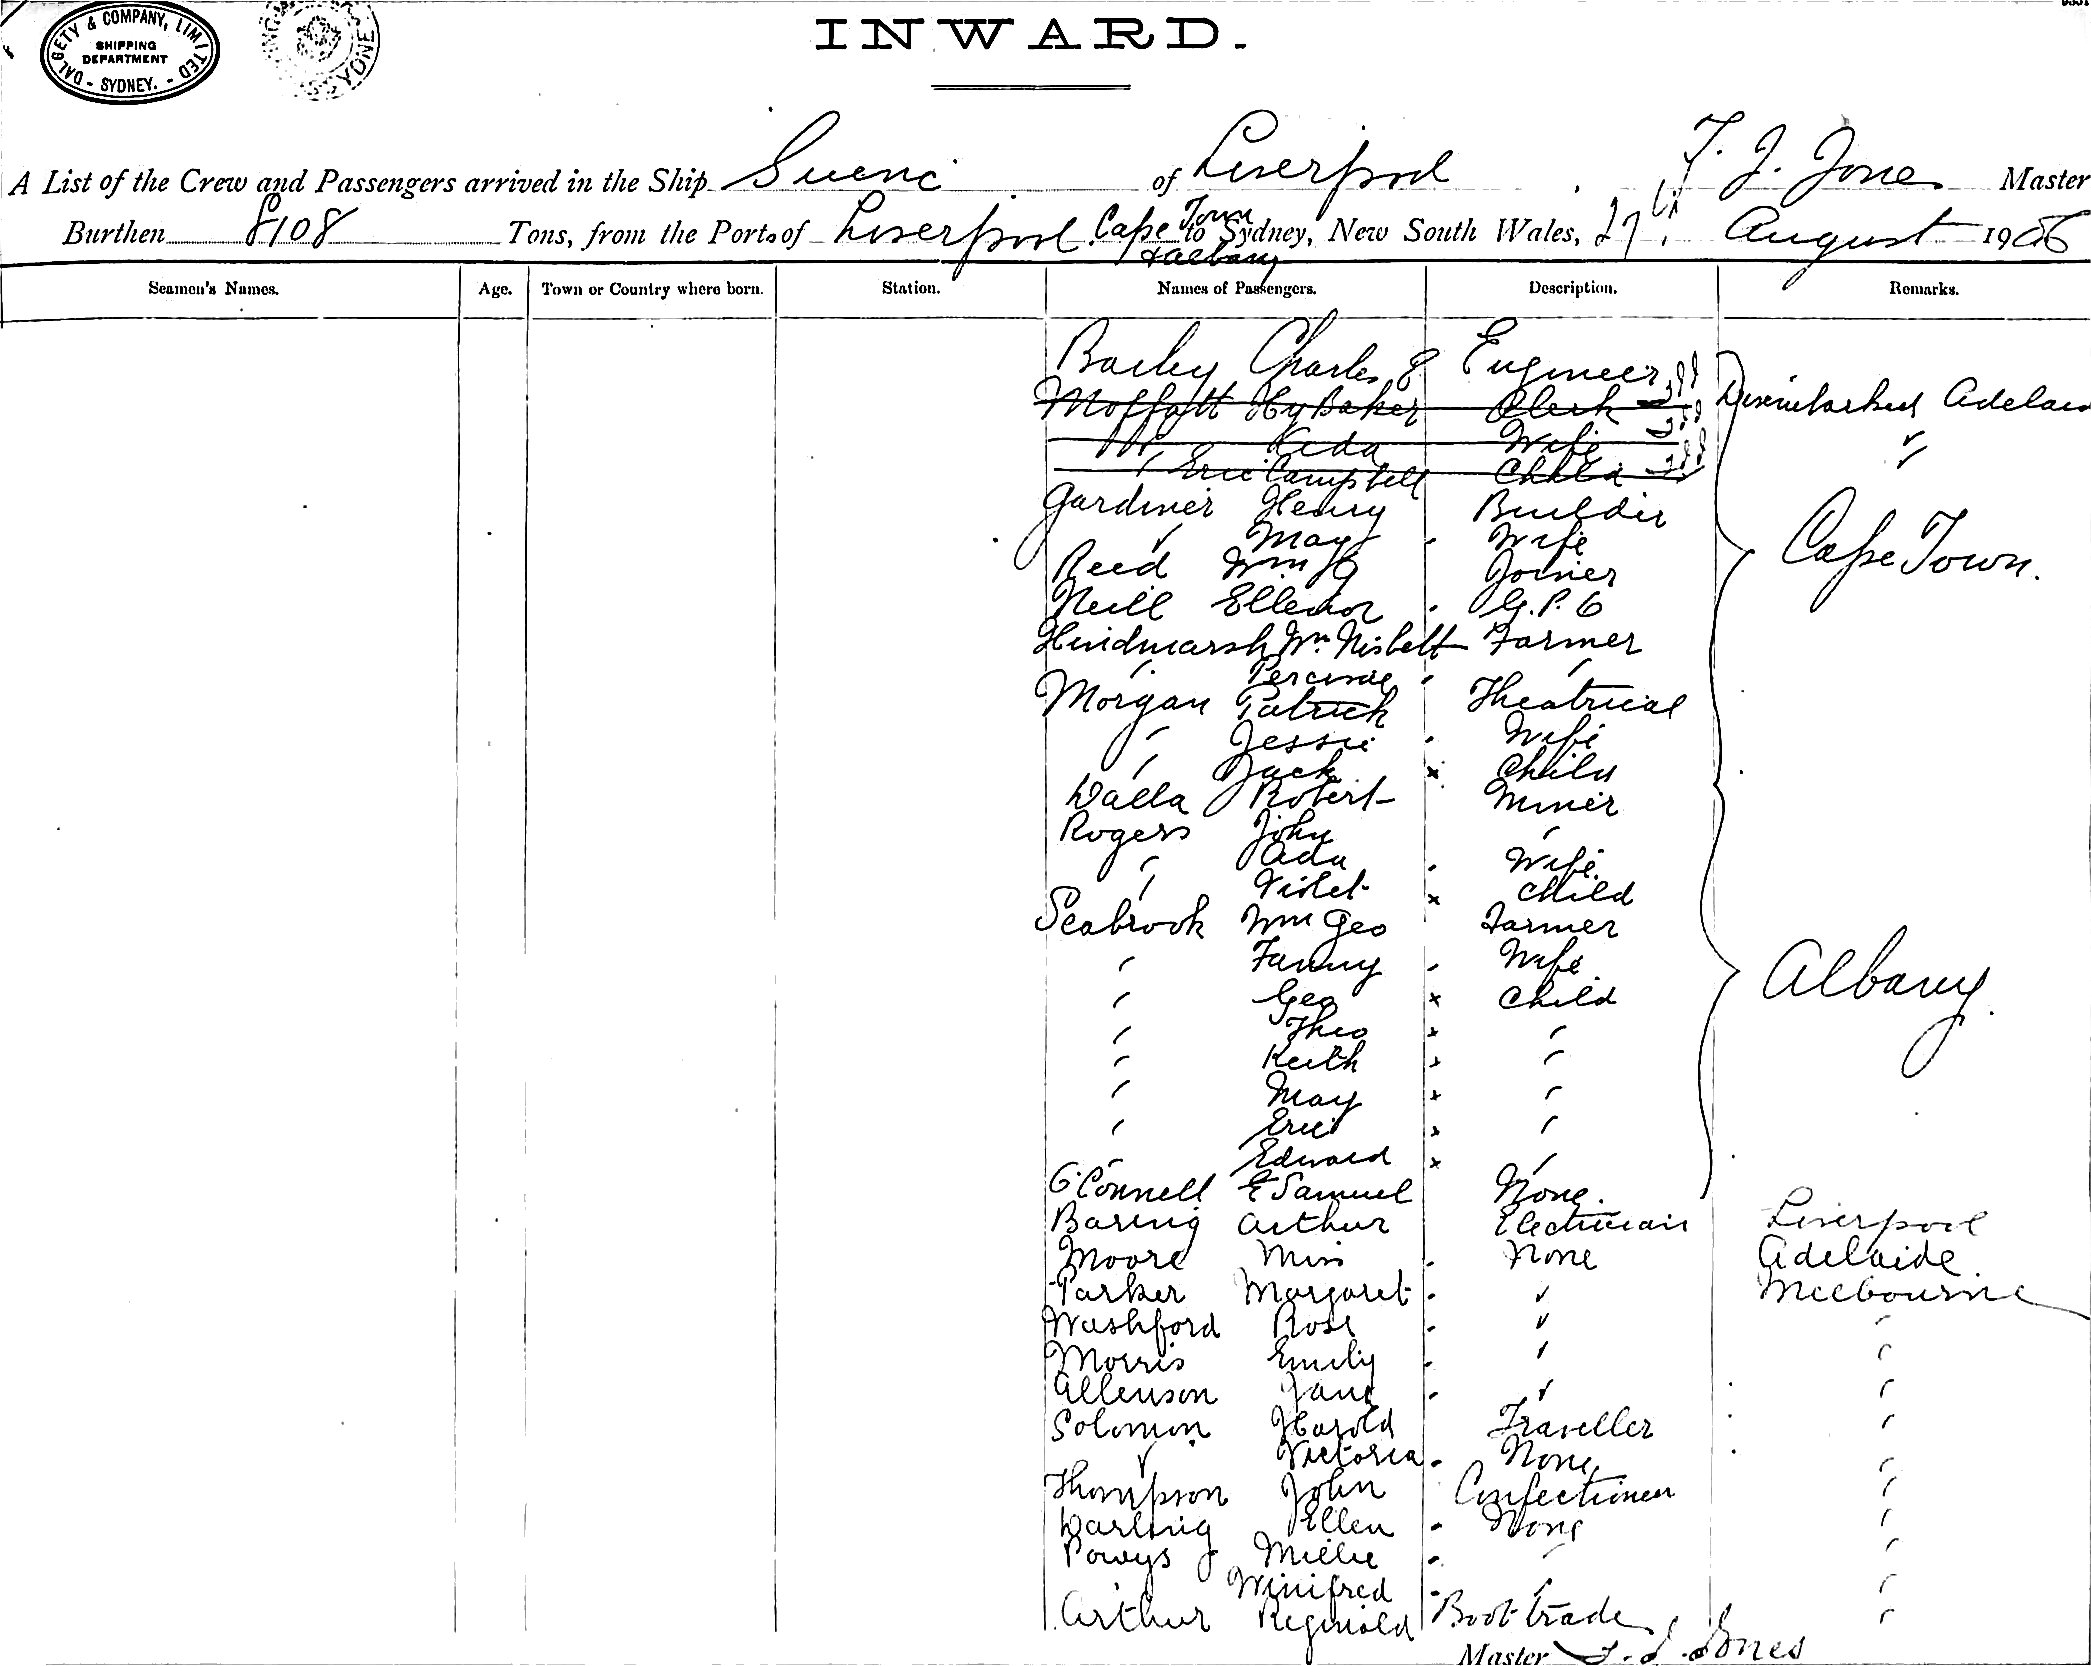 DALGETY & COMPANY, LIMITED
SHIPPING
DEPARTMENT
- SYDNEY. -
SYDNEY
INWARD.
A List of the Crew and Passengers arrived in the Ship Suevic of Liverpool T. J. Jones Master
Burthen 8108 Tons, from the Ports of Liverpool Cape Town & Albany to Sydney, New South Wales, 27th August 1906
Seamen's Names. Age. Town or Country where born. Station. Names of Passengers. Description. Remarks.
Bailey Charles E Engineer
Moffatt Hy Baker Clerk Disembarked Adelaid
" Wife "
" Eric Campbell Child "
Gardiner Henry Builder
" May Wife Cape Town.
Reed Wm G Joiner
Neill Ellenor G.P.O
Hindmarsh Wm. Nisbett Farmer
" Percival "
Morgan Patrick Theatrical
" Jessie Wife
" Jack x Child
Robert Miner
Rogers John "
" Ada Wife.
" Violet x Child
Seabrook Wm Geo Farmer
" Fanny Wife
" Geo x Child Albany.
" Theo x "
" Keith x "
" May x "
" Eric x "
" Edward x "
O'Connell E Samuel None.
Baring Arthur Electrician Liverpool
Moore Miss None Adelaide.
Parker Margaret " Melbourne
Washford Rose " "
Morris Emily " "
Allenson Jane " "
Solomon Harold Traveller "
" Victoria None "
Thompson John Confectioner "
Darling Ellen None "
Powys Millie " "
Winifred " "
Arthur Reginald Boot trade "
Master T. J. Jones